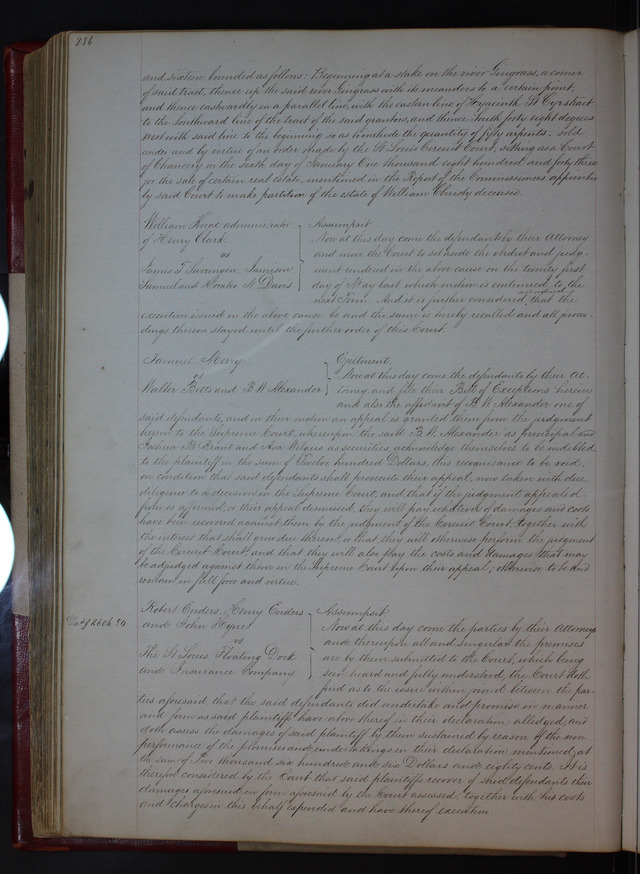 236
and sixteen bounded as follows: Beginning at a stake on the river Gingrass, a corner
of said tract, thence up the said river Gingrass with its meanders to a certain point,
and thence eastwardly in a parallel line, with the eastern line of Hyacinth St Cyrs tract
to the Southward line of the tract of the said grantors, and thence South forty eight degrees
West with said line to the beginning so as to include the quantity of fifty arpents. Sold
under and by virtue of an order made by the St Louis Circuit Court, sitting as a Court
of Chancery on the sixth day of January One thousand eight hundred and forty three
for the sale of certain real estate, mentioned in the Report of the Commissioners appointed
by said Court to make partition of the estate of William deceased.
William Knox administrator
of Henry Clark
vs
James T. Swearingen, Jamison
Samuel and Horatio N Davis
Assumpsit
Now at this day come the defendants by their Attorney
and move the Court to set aside the verdict and judg-
ment rendered in the above cause on the twenty first
day of May last which motion is continued to the
next Term. And it is further considered that the
execution issued in the above cause be and the same is hereby recalled and all procee-
dings thereon stayed until the further order of this Court.
Samuel Merry
vs
Walter Betts and B. W. Alexander
Ejectment
Now at this day come the defendants by their At-
torney, and file their Bill of Exceptions herein
and also the affidavit of B. W. Alexander one of
said defendants, and on their motion an appeal is granted them from the judgment
herein to the Supreme Court, whereupon the said B. W. Alexander as principal and
Joshua B. Brant and Asa Wilgus as securities, acknowledge themselves to be indebted
to the plaintiff in the sum of Twelve hundred Dollars, this recognizance to be void,
on condition that said defendants shall prosecute their appeal, now taken with due
diligence to a decision in the Supreme Court, and that if the judgment appealed
from is affirmed, or their appeal dismissed, they will pay whatever of damages and costs
have been recovered against them by the judgment of the Circuit Court, together with
the interest that shall grow due thereon, or that they will otherwise perform the judgment
of the Circuit Court, and that they will also pay the costs and damages that may
be adjudged against them in the Supreme Court upon their appeal; otherwise to be and
remain in full force and virtue.
Robert Enders, Henry Enders
and John Hynes
vs
The St Louis Floating Dock
and Insurance Company
Assumpsit
Now at this day come the parties by their Attorneys
and thereupon all and singular the premises
are by them submitted to the Court, which being
seen heard and fully understood, the Court doth
find as to the issue within joined between the par-
ties aforesaid that the said defendants did undertake and promise in manner
and form as said plaintiffs have above thereof in their declaration alledged, and
doth assess the damages of said plaintiff by them sustained by reason of the non
performance of the promises and undertakings in their declaration mentioned, at
the sum of thousand six hundred and six Dollars and eighty cents. It is
therefore considered by the Court that said plaintiffs recover of said defendants their
damages aforesaid in form aforesaid by the Court assessed, together with his costs
and charges in this behalf expended and have thereof execution.